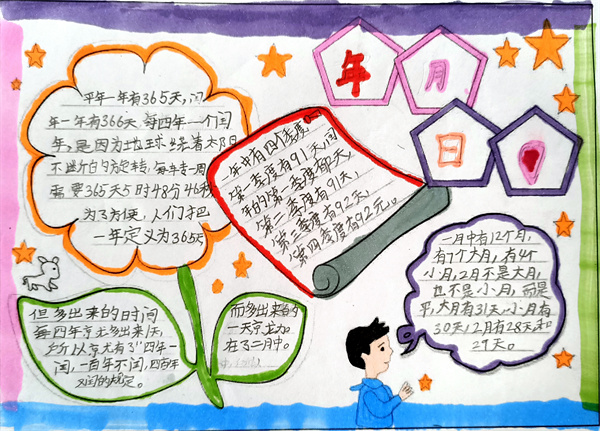 年 月
日
平年一年有365天,闰
年一年有366天.每四年一个闰
年,是因为地球绕着太阳
不断的旋转,每半专一周
需要365天5时48分46秒
为了方便,人们才把
一年定义为365天
一年中有四个季度。
第一季度有91天,闰
年的第一季度有0天,
第二季度有91天,
第三季度有92天,
第四季度有92元。
一月中有12个月,
有7个大月,有4个
小月,2月不是大月,
也不是小月,而是
平,大月有31天.小月有
30天,2月有28天和
29天。
但多出来的时间
每四年京尤多出来1天,
所以京尤有了"四年一
闰,一百年不闰,四百年
又闰的规定。
而多出来的
一天京尤加
在了二月中。